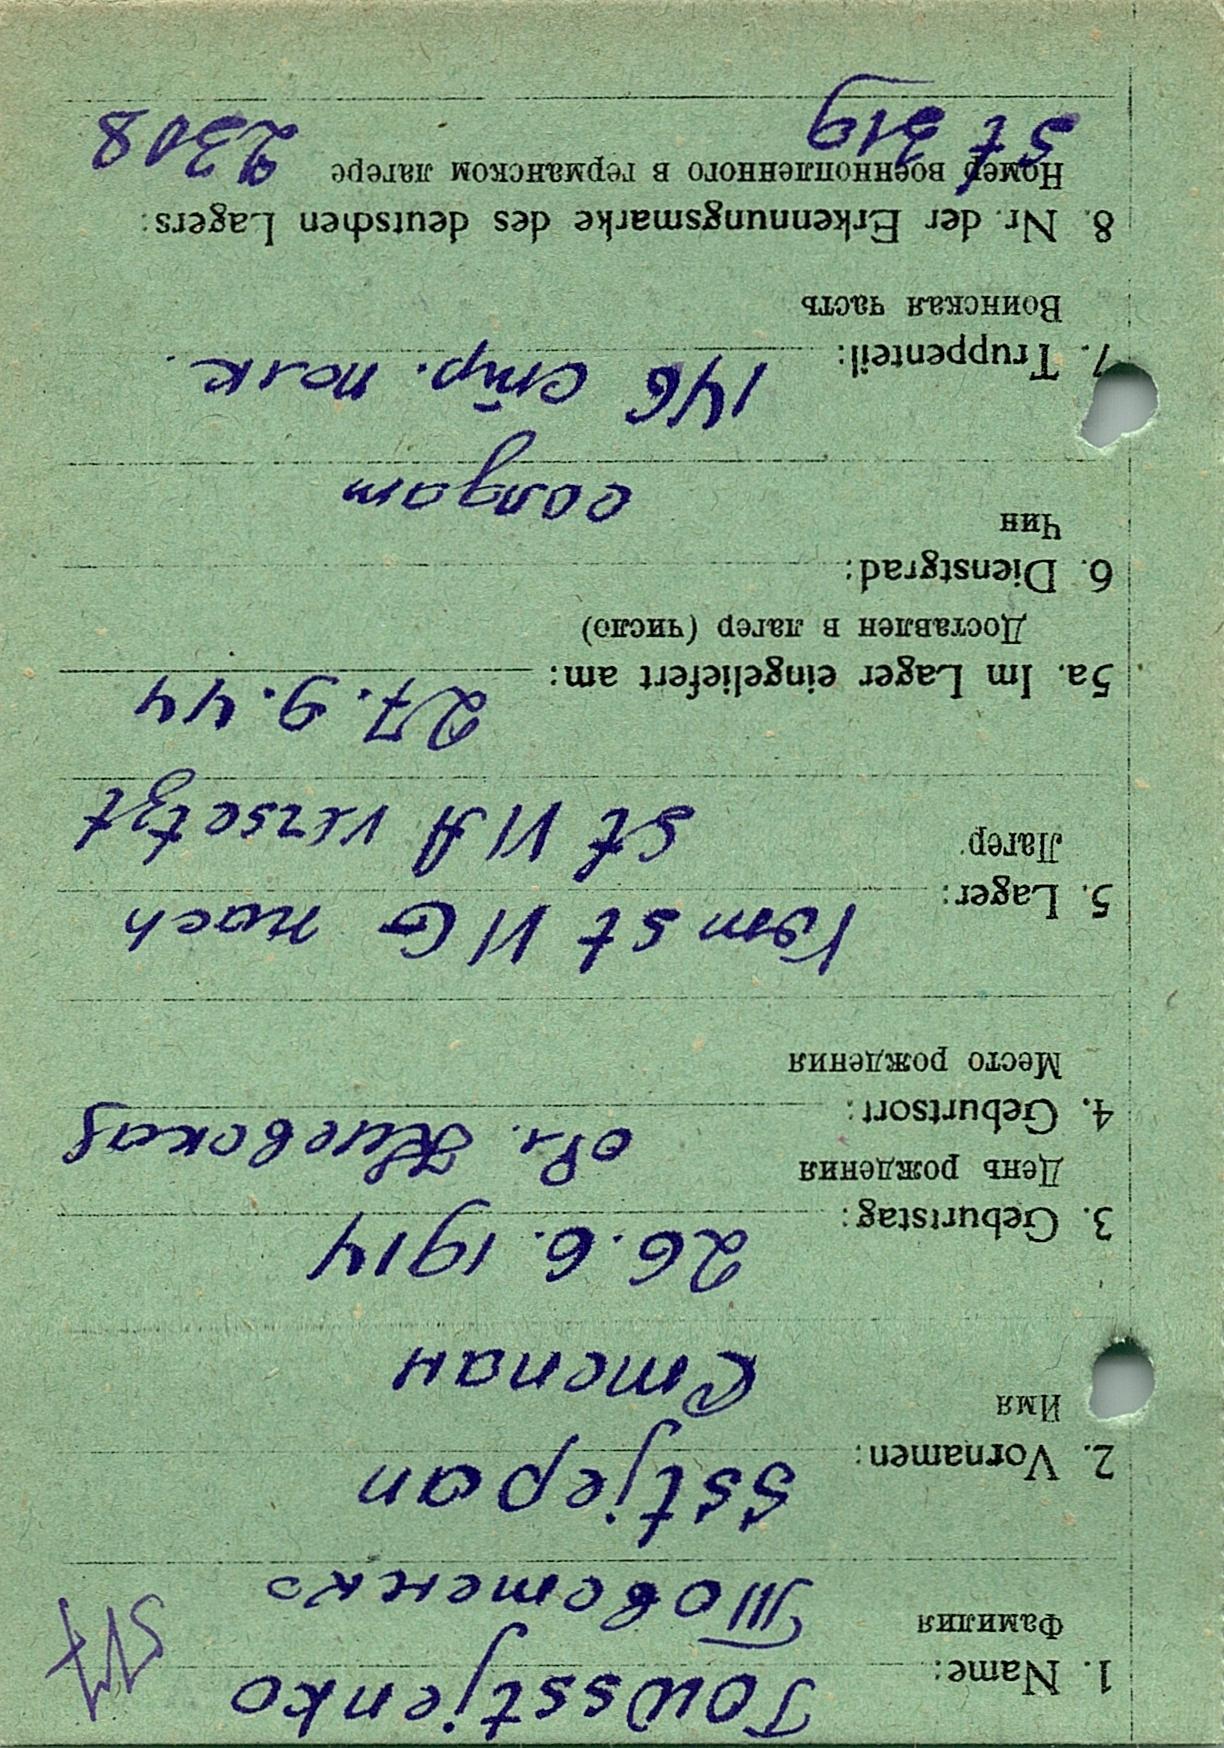 1. Name: Towsstjenko
Фамилия Товстенко
517
2. Vornamen: Sstjepan
Имя Степан
3. Geburtstag: 26.6.1914
День рождения
4. Geburtsort: обл. Киевская
Место рождения
5. Lager: Vom St VI G nach
Лагер St VI A versetzt
5a. Im Lager eingeliefert am: 27.9.44
Доставлен в лагер (число)
6. Dienstgrad:
Чин солдат
7. Truppenteil: 146 стр. полк.
Воинская часть
8. Nr. der Erkennungsmarke des deutschen Lagers:
Номер военнопленного в германском лагере
St 319 2308